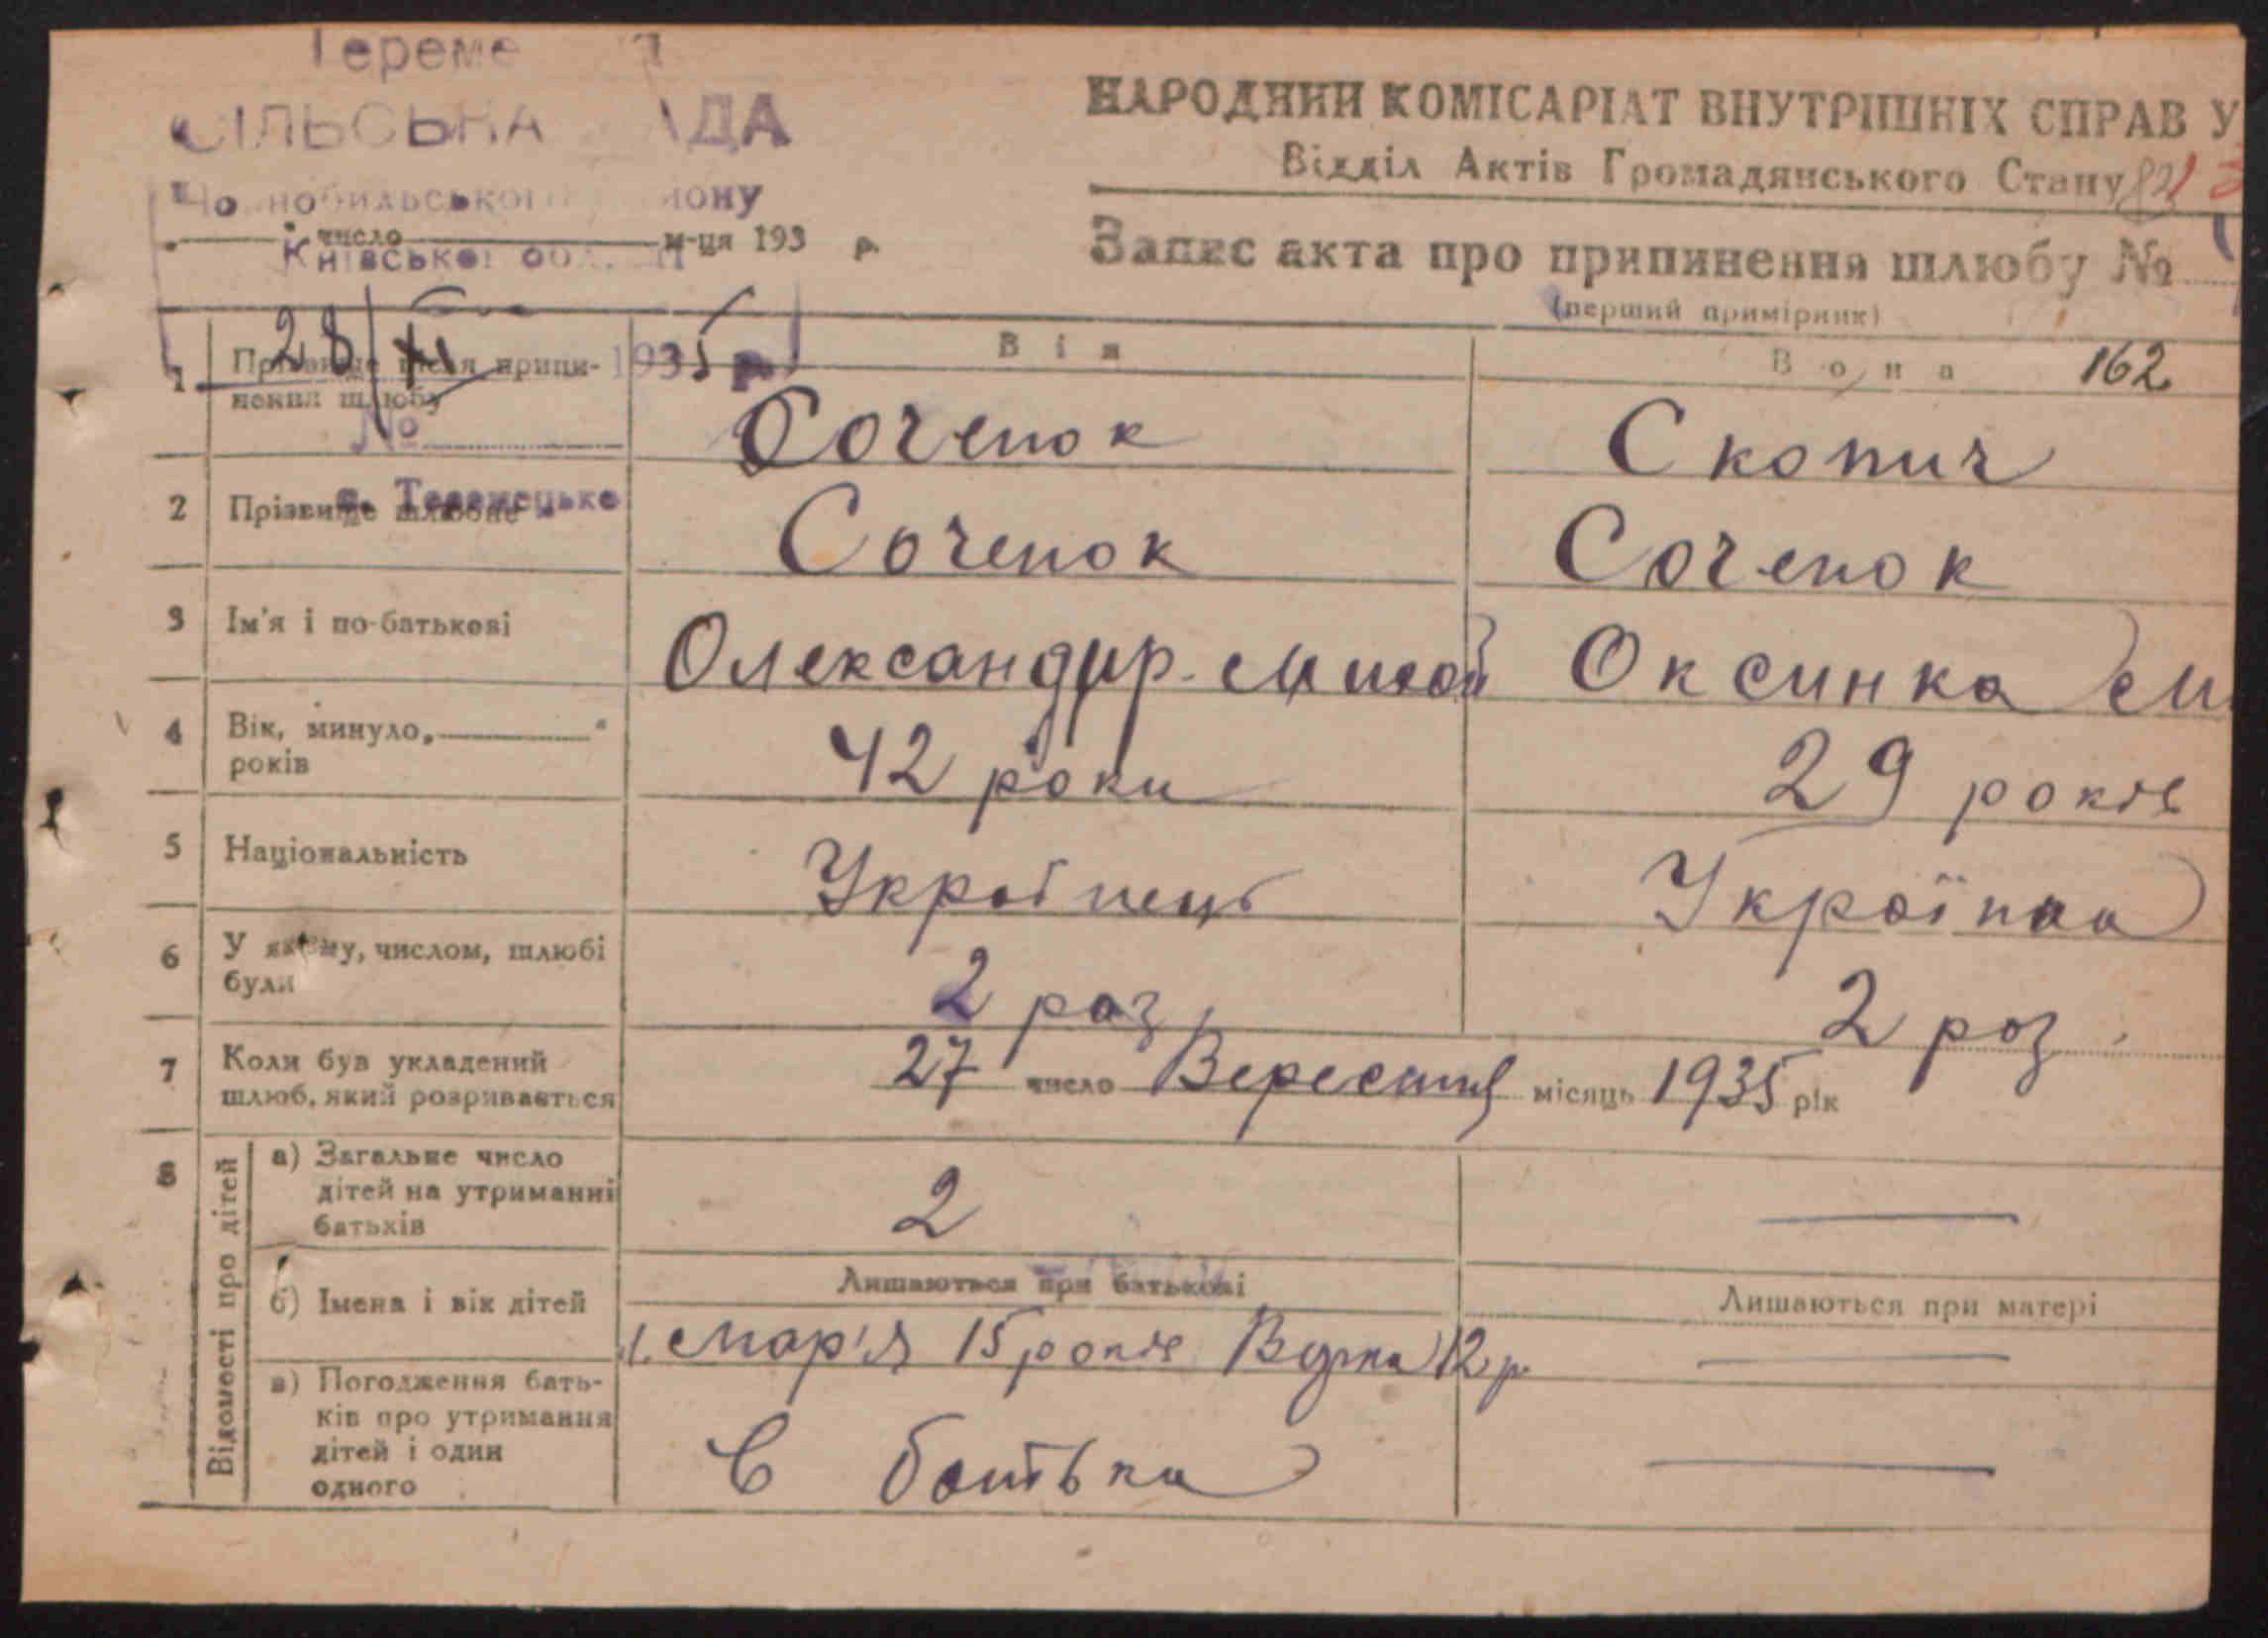 СІЛЬСЬКА РАДА
Чорнобильського району
Київської обл.
НАРОДНИЙ КОМІСАРІАТ ВНУТРІШНІХ СПРАВ У
Відділ Актів Громадянського Стану
число м-ця 193 р.
Запис акта про припинення шлюбу №
(перший примірник)
28/XI 1935 р.
№
с. Теремецьке
162
Він Вона
1 Прізвище після припинення шлюбу Соченок Скопич
2 Прізвище шлюбне Соченок Соченок
3 Ім'я і по-батькові Олександир Оксинка
4 Вік, минуло „ “ років 42 роки 29 років
5 Національність Українець Українка
6 У якому, числом, шлюбі були 2 раз 2 роз
7 Коли був укладений шлюб, який розривається 27 число Вересня місяць 1935 рік
8 Відомості про дітей
а) Загальне число дітей на утриманні батьків 2 —
б) Імена і вік дітей Лишаються при батькові Лишаються при матері
1. Мар'я 15 років 12 р. —
в) Погодження батьків про утримання дітей і один одного в батька —